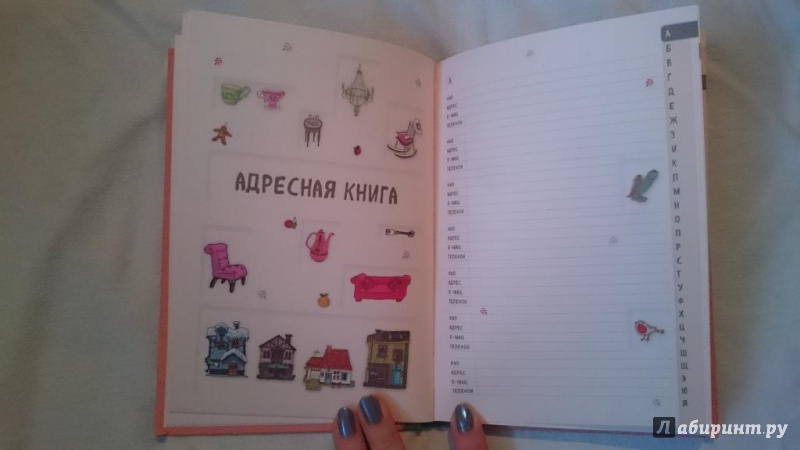 АДРЕСНАЯ КНИГА
А
ИМЯ
АДРЕС
E-MAIL
ТЕЛЕФОН
ИМЯ
АДРЕС
E-MAIL
ТЕЛЕФОН
ИМЯ
АДРЕС
E-MAIL
ТЕЛЕФОН
ИМЯ
АДРЕС
E-MAIL
ТЕЛЕФОН
ИМЯ
АДРЕС
E-MAIL
ТЕЛЕФОН
ИМЯ
АДРЕС
E-MAIL
ТЕЛЕФОН
ИМЯ
АДРЕС
E-MAIL
ТЕЛЕФОН
А
Б
В
Г
Д
Е
Ж
З
И
К
Л
М
Н
О
П
Р
С
Т
У
Ф
Х
Ц
Ч
Ш
Щ
Э
Ю
Я
Лабиринт.ру